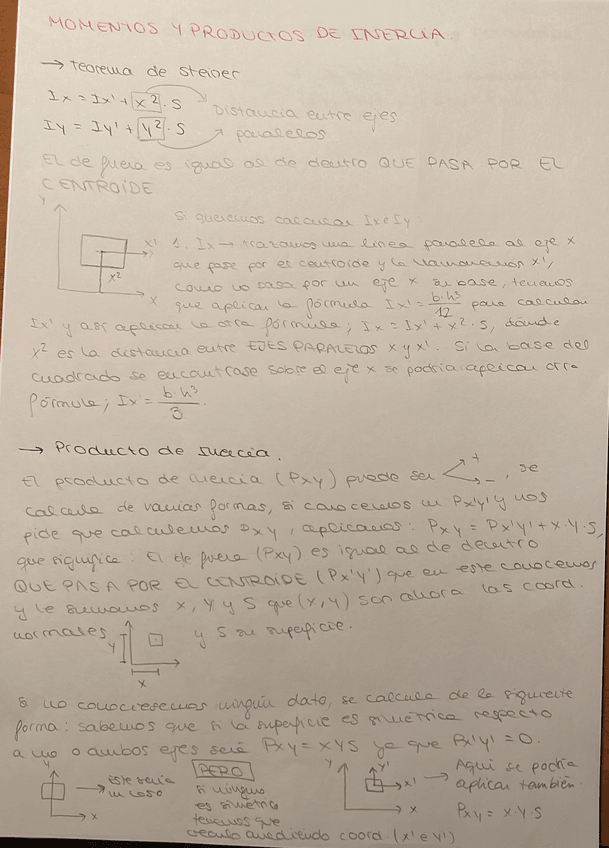 MOMENTOS Y PRODUCTOS DE INERCIA
→ Teorema de Steiner
Ix = Ix' + x² · S
Distancia entre ejes
Iy = Iy' + y² · S
paralelos
El de fuera es igual al de dentro QUE PASA POR EL
CENTROIDE
Y
Si queremos calcular Ix e Iy
X'
1. Ix → trazamos una línea paralela al eje x
que pase por el centroide y la llamaremos x',
x²
como no pasa por un eje x su base, tenemos
X
que aplicar la fórmula Ix' = b·h³/12 para calcular
Ix' y así aplicar la otra fórmula; Ix = Ix' + x² · S, donde
x² es la distancia entre EJES PARALELOS x y x'. Si la base del
cuadrado se encontrase sobre el eje x se podría aplicar otra
fórmula; Ix' = b·h³/3.
→ Producto de Inercia.
El producto de inercia (Pxy) puede ser + -, se
calcula de varias formas, si conocemos un Px'y' y nos
pide que calculemos Pxy, aplicamos: Pxy = Px'y' + x·y·S,
que significa: El de fuera (Pxy) es igual al de dentro
QUE PASA POR EL CENTROIDE (Px'y') que en este conocemos
y le sumamos x, y y S que (x, y) son ahora las coord.
normales
y S su superficie.
Y
X
Si no conociesemos ningún dato, se calcula de la siguiente
forma: sabemos que si la superficie es simétrica respecto
a uno o ambos ejes será Pxy = xys ya que Px'y' = 0.
Y
X
→ este sería
un caso
PERO
si ninguno
es simétrico
tenemos que
añadiendo coord. (x' e y')
Y
Y'
X'
X
→ Aquí se podría
aplicar también
Pxy = x·y·S